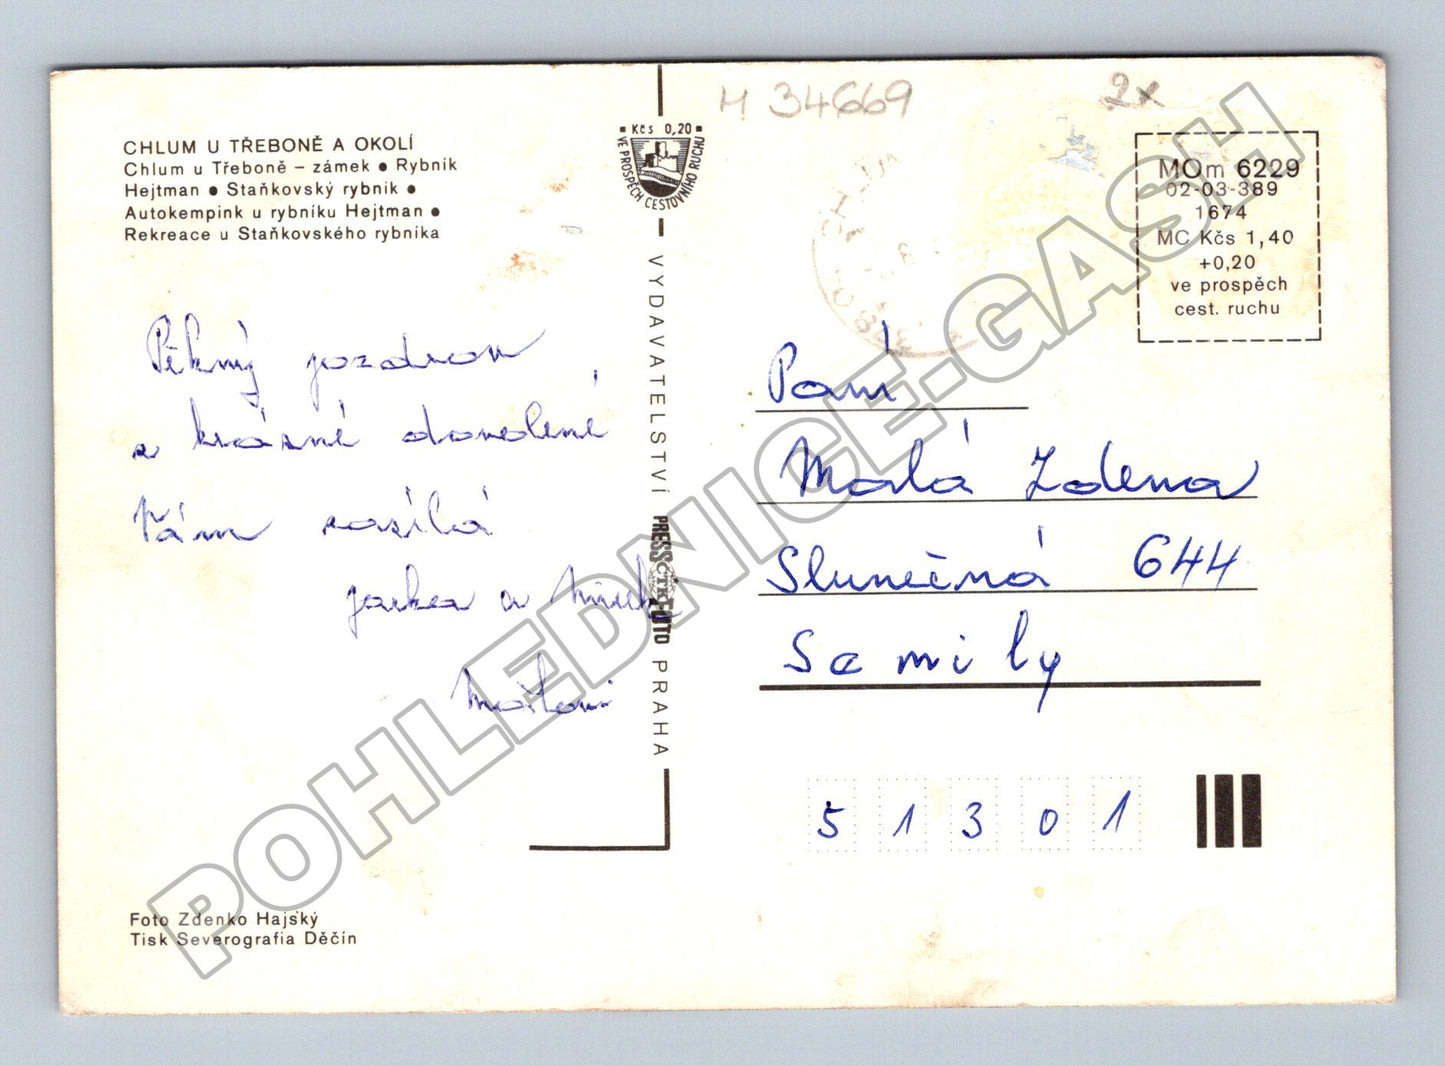 M 34669
2x
CHLUM U TŘEBONĚ A OKOLÍ
Chlum u Třeboně – zámek ● Rybník
Hejtman ● Staňkovský rybník ●
Autokempink u rybníku Hejtman ●
Rekreace u Staňkovského rybníka
Kčs 0,20
VE PROSPĚCH CESTOVNÍHO RUCHU
MOm 6229
02-03-389
1674
MC Kčs 1,40
+0,20
ve prospěch
cest. ruchu
Pěkný pozdrav
z krásné dovolené
Vám zasílá
Jarka a Mirek
VYDAVATELSTVÍ PRESSFOTO PRAHA
ČTK
Paní
Malá Zdena
Slunečná 644
Semily
51301
Foto Zdenko Hajský
Tisk Severografia Děčín
POHLEDNICE.GASH